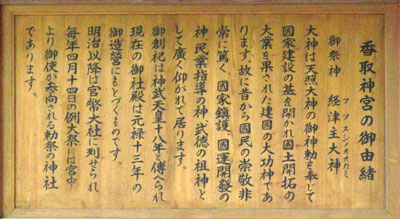 香取神宮の御由緒
フツヌシノオオカミ
御祭神 経津主大神
大神は天照大神の御神勅を奉じて
国家建設の基を開かれ国土開拓の
大業を果された建国の大功神であ
ります。故に昔から国民の崇敬非
常に篤く、国家鎮護、国運開発の
神、民業指導の神、武徳の祖神と
して廣く仰がれて居ります。
御創祀は神武天皇十八年と傳へられ
現在の御社殿は元禄十三年の
御造営にもとづくものです。
明治以降は官幣大社に列せられ
毎年四月十四日の例大祭には宮中
より御使が参向される勅祭の神社
であります。